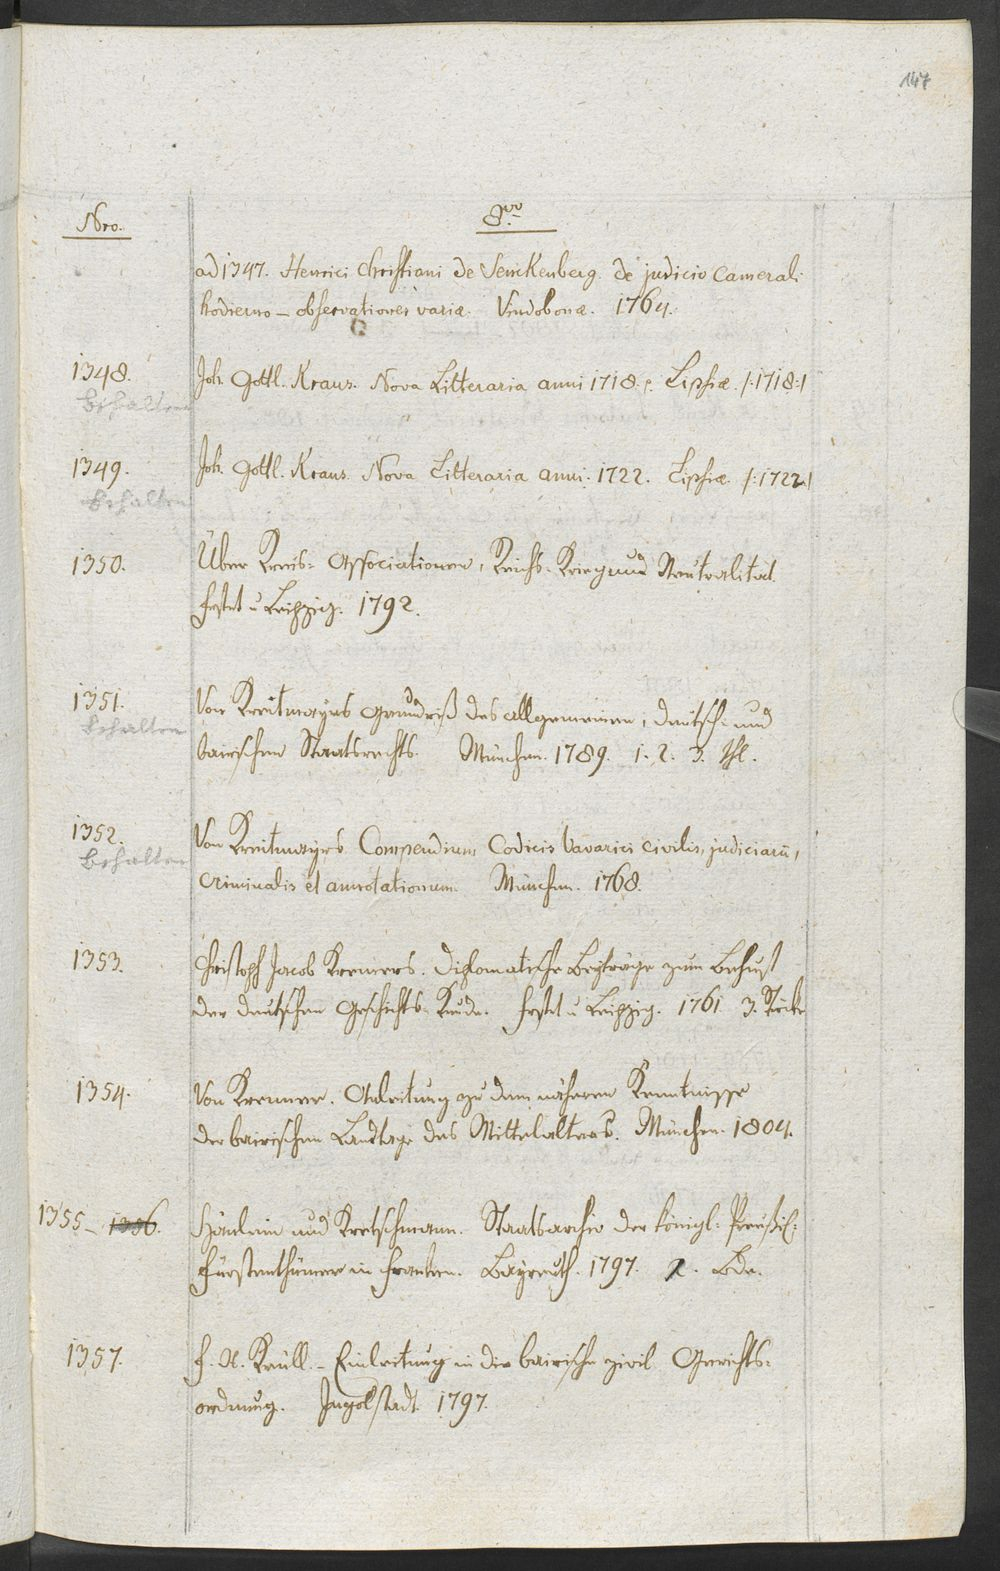 147
Nro.
8vo
ad 1347. Henrici Christiani de Senckenberg. de judicio Camerali
hodierno – observationes variæ. Vindobonæ. 1764.
1348. Joh. Gottl. Kraus. Nova Litteraria anni 1718. Lipsiæ. /:1718:/
behalten
1349. Joh. Gottl. Kraus. Nova Litteraria anni. 1722. Lipsiæ. /:1722:/
behalten
1350. Über Kreis-Associationen, Reichs-Krieg und Neutralitæt.
Frft u Leipzig. 1792.
1351. Von Kreitmayrs Grundriß des allgemeinen, deutsch- und
behalten
bairischen Staatsrechts. München. 1789. 1. 2. 3. Thl.
1352. Von Kreitmayrs Compendium Codicis bavarici civilis, judiciarii,
behalten
criminalis et annotationum. München. 1768.
1353. Christoph Jacob Kremers. Diplomatische Beyträge zum Behuf
der deutschen Geschichts-Kunde. Frft u Leipzig. 1761. 3. Stücke
1354. Von Krenner. Anleitung zu dem näheren Kenntnisse
der bairischen Landtage des Mittelalters. München. 1804.
1355 – 1356. Hänlein und Kretschmann. Staatsarchiv der königl: Preußis:
Fürstenthümer in Franken. Bayreuth. 1797. 2. Bde.
1357. F. A. Krüll. – Einleitung in die bairische zivil Gerichts-
ordnung. Ingolstadt. 1797.